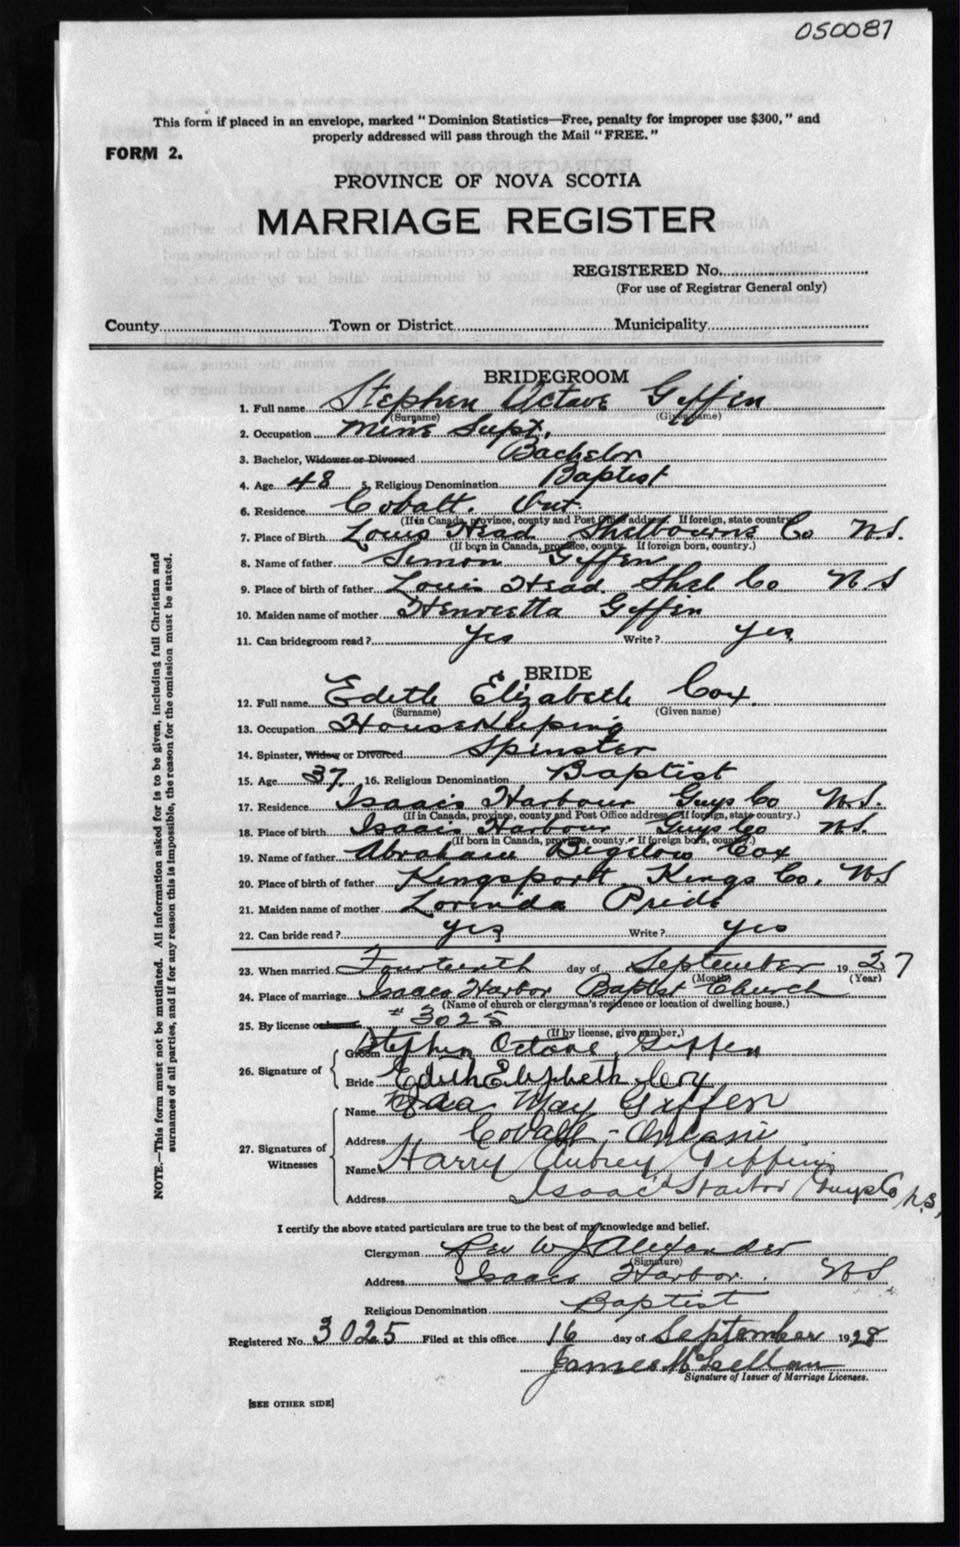 050087
This form if placed in an envelope, marked "Dominion Statistics—Free, penalty for improper use $300," and
properly addressed will pass through the Mail "FREE."
FORM 2.
PROVINCE OF NOVA SCOTIA
MARRIAGE REGISTER
REGISTERED No.
(For use of Registrar General only)
County Town or District Municipality
BRIDEGROOM
1. Full name Stephen Octave Giffen
(Surname) (Given name)
2. Occupation Mine Supt.
3. Bachelor, Widower or Divorced Bachelor
4. Age 48 5. Religious Denomination Baptist
6. Residence Cobalt. Ont.
(If in Canada, province, county and Post Office address. If foreign, state country.)
7. Place of Birth Louis Head Shelbourne Co N.S.
(If born in Canada, province, county. If foreign born, country.)
8. Name of father Simon Giffen
9. Place of birth of father Louis Head. Shel Co N S
10. Maiden name of mother Henrietta Giffen
11. Can bridegroom read? Yes Write? Yes
BRIDE
12. Full name Edith Elizabeth Cox.
(Surname) (Given name)
13. Occupation House Keeping
14. Spinster, Widow or Divorced Spinster
15. Age 37 16. Religious Denomination Baptist
17. Residence Isaac's Harbour Guys Co N.S.
(If in Canada, province, county and Post Office address. If foreign, state country.)
18. Place of birth Isaac's Harbour Guys Co N.S.
(If born in Canada, province, county. If foreign born, country.)
19. Name of father Abraham Bigelow Cox
20. Place of birth of father Kingsport Kings Co. N.S
21. Maiden name of mother Lorinda Pride
22. Can bride read? yes Write? yes
23. When married Fourteenth day of September 1937
(Month) (Year)
24. Place of marriage Isaacs Harbor Baptist Church
(Name of church or clergyman's residence or location of dwelling house.)
25. By license or banns # 3025
(If by license, give number.)
26. Signature of
Groom Stephen Octave Giffen
Bride Edith Elizabeth Cox
27. Signatures of Witnesses
Name Ida May Giffen
Address Cobalt, Ontario
Name Harry Aubrey Giffin
Address Isaac's Harbor Guys Co N.S.
I certify the above stated particulars are true to the best of my knowledge and belief.
Clergyman Rev W J Alexander
(Signature)
Address Isaacs Harbor. N S
Religious Denomination Baptist
Registered No. 3025 Filed at this office 16 day of September 1928
James McLellan
Signature of Issuer of Marriage Licenses.
[SEE OTHER SIDE]
NOTE.—This form must not be mutilated. All information asked for is to be given, including full Christian and
surnames of all parties, and if for any reason this is impossible, the reason for the omission must be stated.